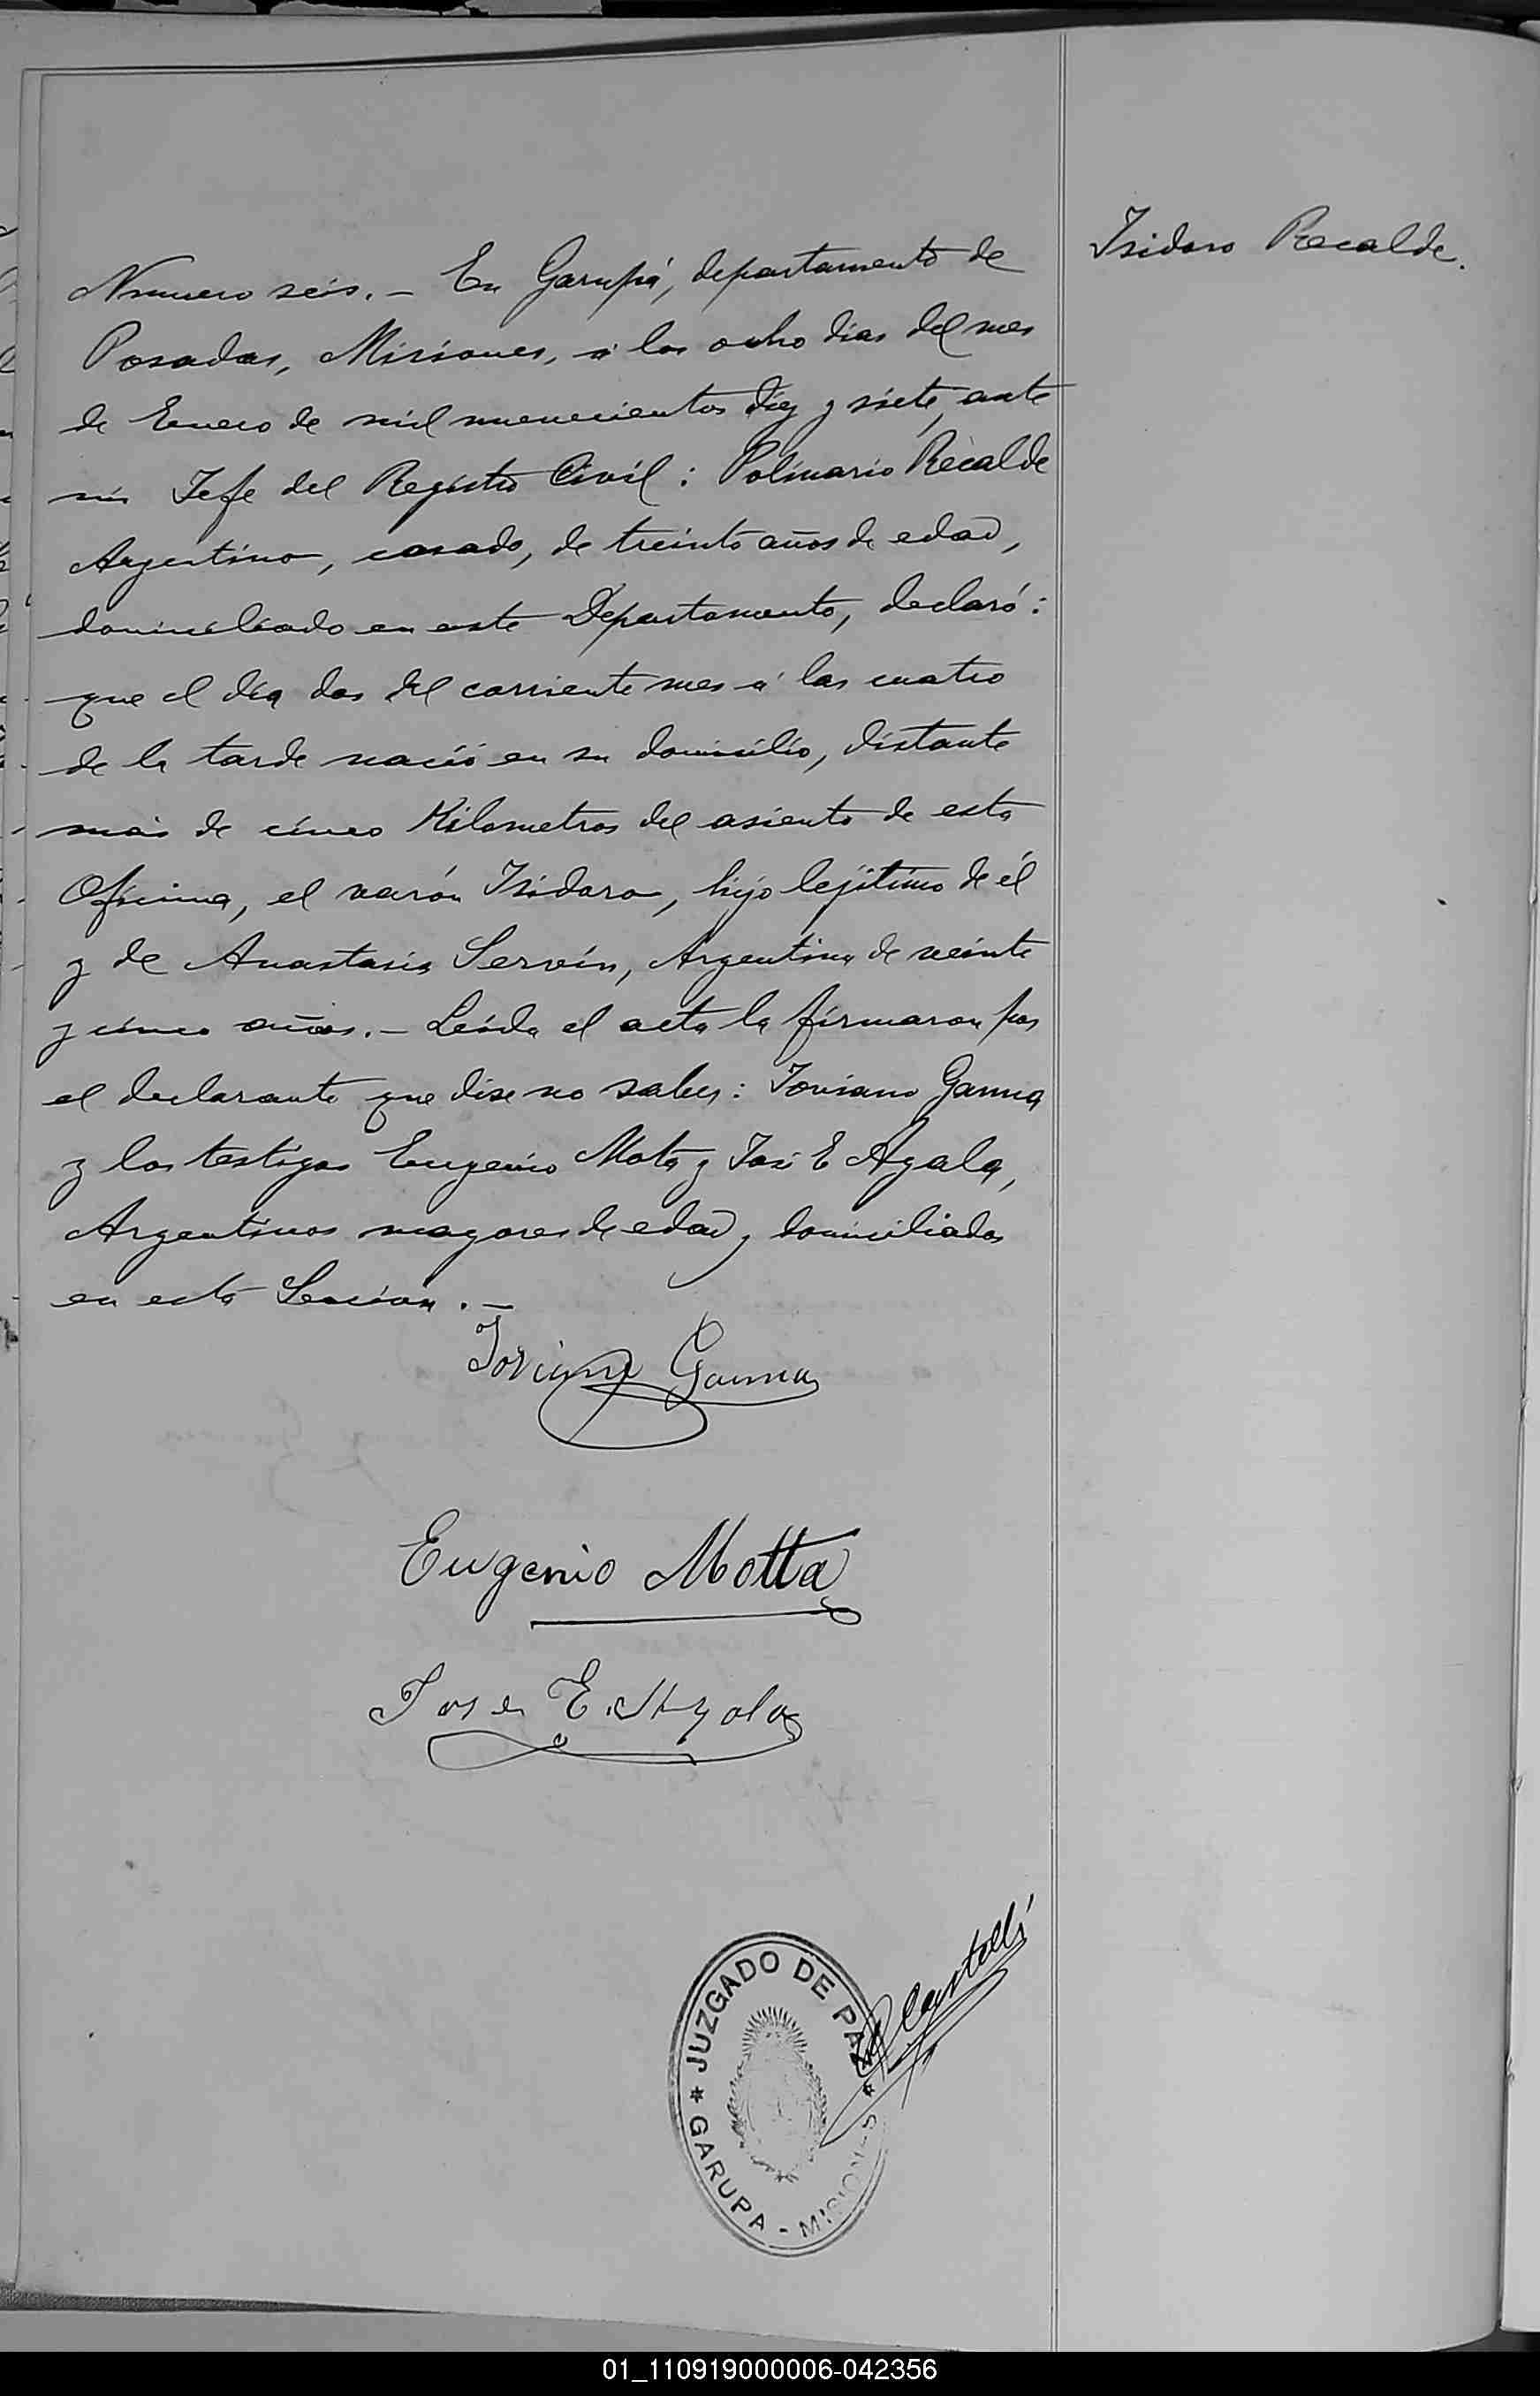 Isidoro Recalde.
Numero seis. – En Garupá, departamento de
Posadas, Misiones, á los ocho dias del mes
de Enero de mil nuevecientos diez y siete, ante
mi Jefe del Registro Civil: Polinario Recalde
Argentino, casado, de treinta años de edad,
domiciliado en este Departamento, declaró:
que el día dos del corriente mes á las cuatro
de la tarde nació en su domicilio, distante
más de cinco Kilometros del asiento de esta
Oficina, el varón Isidoro, hijo lejítimo de él
y de Anastasia Servín, Argentina de veinte
y cinco años. – Leída el acta la firmaron por
el declarante que dise no saber: Joviano Gamma
y los testigos Eugenio Mota y José E Ayala,
Argentinos mayores de edad y domiciliados
en esta Seccion. –
Joviano Gamma
Eugenio Motta
Jose E. Ayala
Castelli
JUZGADO DE PAZ
GARUPA - MISIONES
01_110919000006-042356